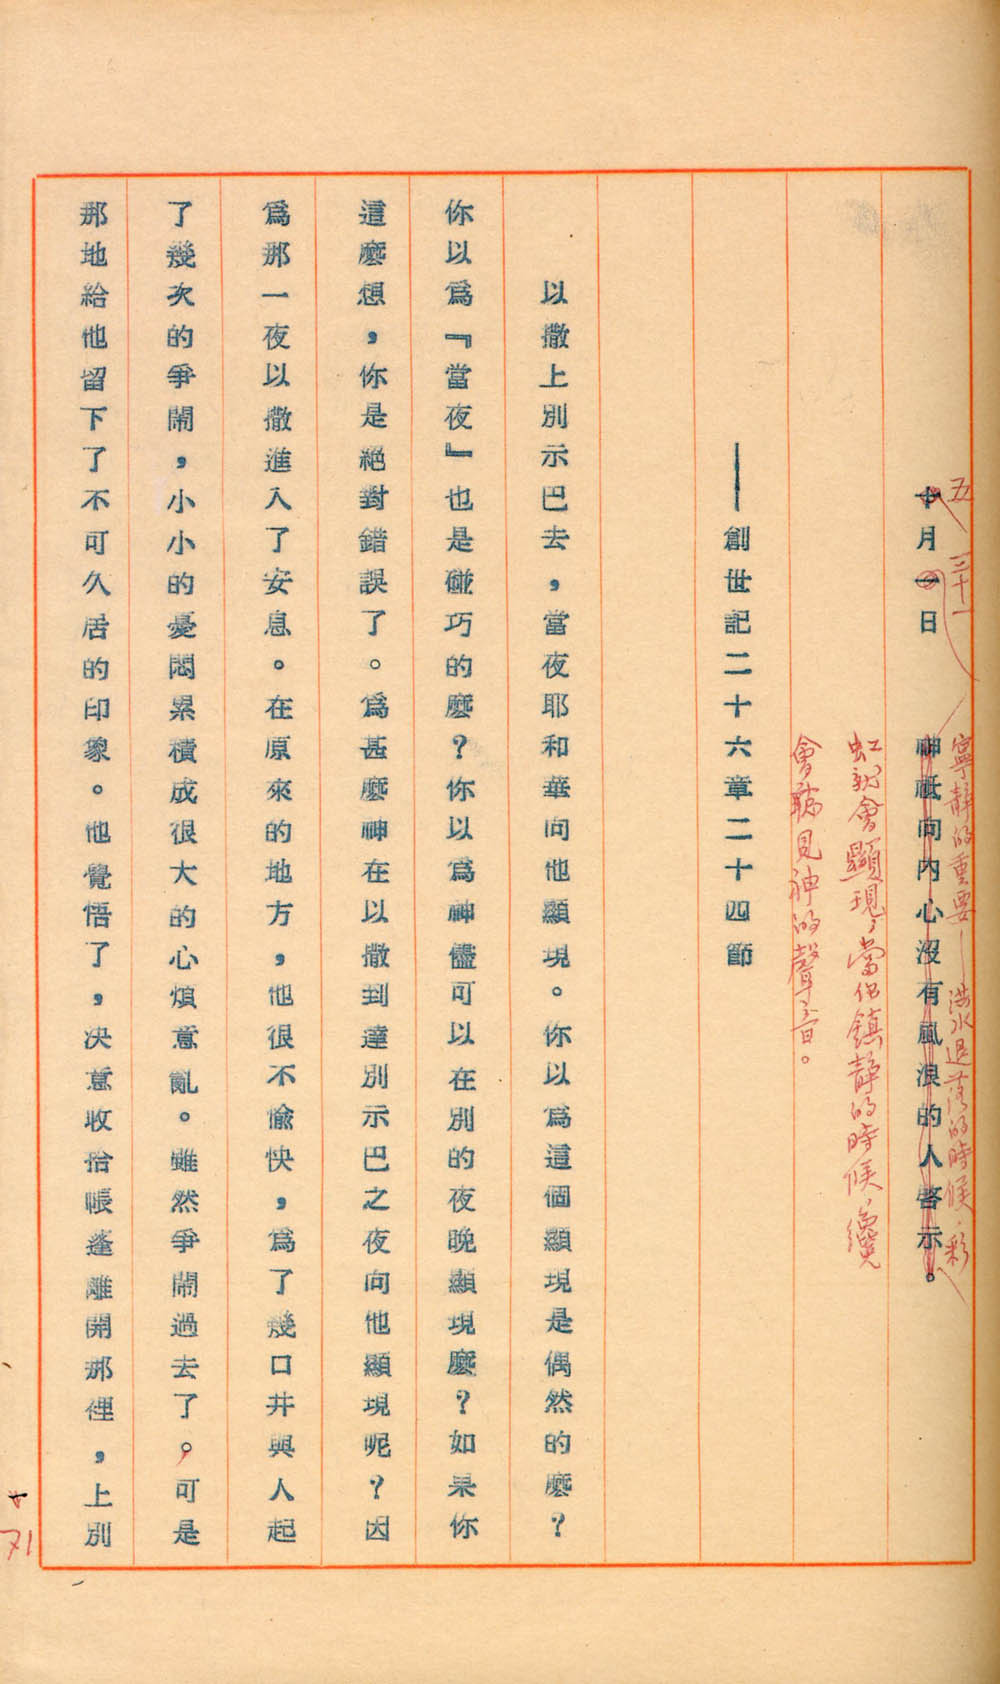 五 三十一
十月一日 神祗向內心沒有風浪的人啓示。
寧靜的重要—洪水退落的時候,彩
虹就會顯現,當你鎮静的時候,纔
會聽見神的聲音。
——創世記二十六章二十四節
以撒上別示巴去,當夜耶和華向他顯現。你以爲這個顯現是偶然的麼?
你以爲『當夜』也是碰巧的麼?你以爲神儘可以在別的夜晚顯現麼?如果你
這麼想,你是絕對錯誤了。爲甚麼神在以撒到達別示巴之夜向他顯現呢?因
爲那一夜以撒進入了安息。在原來的地方,他很不愉快,爲了幾口井與人起
了幾次的爭鬧,小小的憂悶累積成很大的心煩意亂。雖然爭鬧過去了。可是
那地給他留下了不可久居的印象。他覺悟了,決意收拾帳蓬離開那裡,上別
71